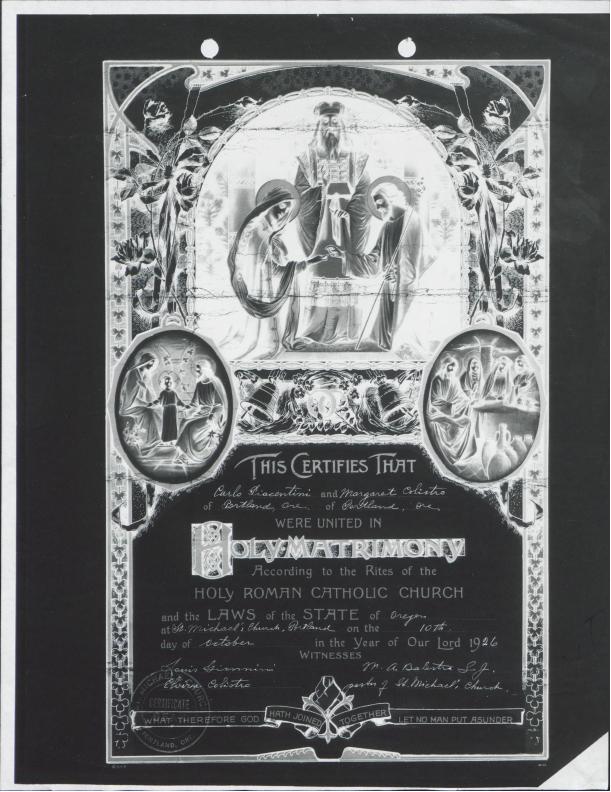 THIS CERTIFIES THAT
Carlo Piacentini and Margaret Colistro
of Portland, Ore. of Portland, Ore.
WERE UNITED IN
HOLY MATRIMONY
According to the Rites of the
HOLY ROMAN CATHOLIC CHURCH
and the LAWS of the STATE of Oregon
at St. Michael's Church, Portland on the 10th.
day of October in the Year of Our Lord 1926
WITNESSES
Louis Giannini M. A. Balestra S.J.
Elvira Colistro pastor of St. Michael's Church.
CERTIFICATE
WHAT THEREFORE GOD HATH JOINED TOGETHER LET NO MAN PUT ASUNDER
PORTLAND, ORE.